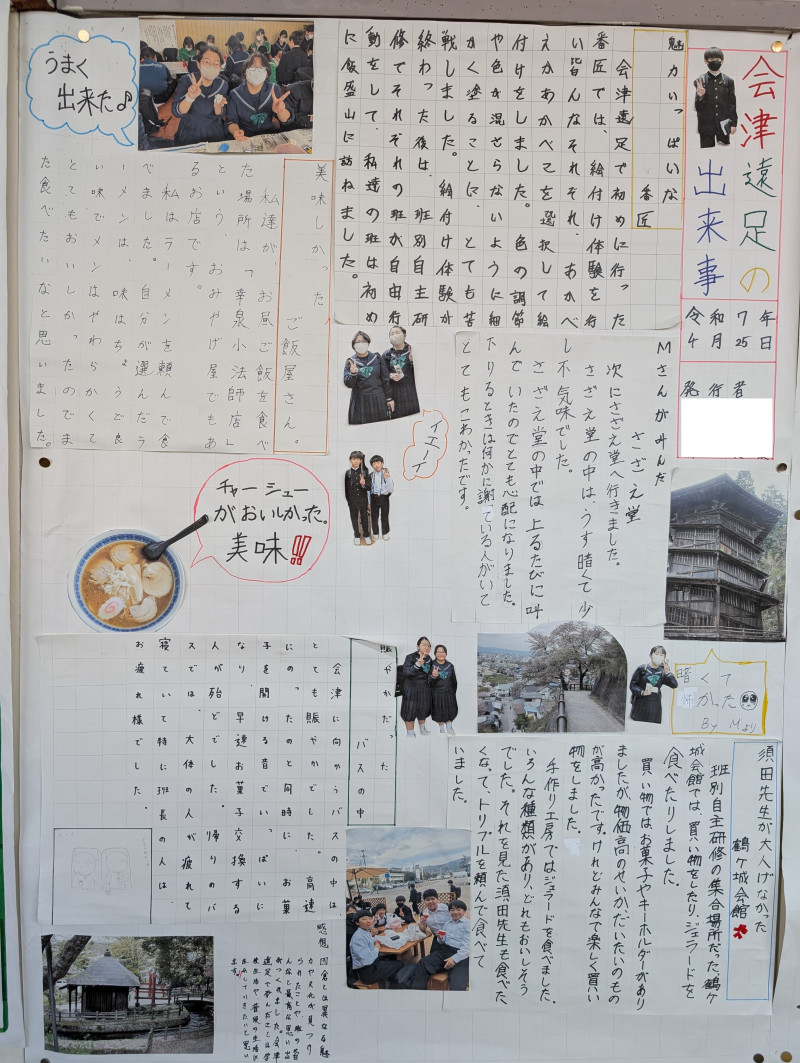 会津遠足の
出来事
令和7年
4月25日
発行者
魅力いっぱいな
番匠
会津遠足で初めに行った
番匠では、絵付け体験を行
い皆んなそれぞれ、あかべ
えかあかべこを選択して絵
付けをしました。色の調節
や色が混ざらないように細
かく塗ることに、とても苦
戦しました。絵付け体験が
終わった後は、班別自主研
修でそれぞれの班が自由行
動をして、私達の班は初め
に飯盛山に訪ねました。
うまく
出来た♪
美味しかった
ご飯屋さん。
私達が、お昼ご飯を食べ
た場所は「幸泉小法師店」
という、おみやげ屋でもあ
るお店です。
私はラーメンを頼んで食
べました。自分が選んだラ
ーメンは、味はちょうど良
い味でメンはやわらかくて
とてもおいしかったのでま
た食べたいなと思いました。
Mさんがみんだ
さざえ堂
次にさざえ堂へ行きました。
さざえ堂の中は、うす暗くて少
し不気味でした。
さざえ堂の中では上るたびに叫
んでいたのでとても心配になりました。
下りるときは何かに謝っている人がいて
とてもこわかったです。
イエーイ
チャーシュー
がおいしかった。
美味!!
暗くて
怖かった
By Mより
賑やかだった
バスの中
会津に向かうバスの中は、
とても賑やかでした。高速
にのったのと同時に、お菓
子を開ける音でいっぱいに
なり、早速お菓子交換する
人が殆どでした。帰りのバ
スでは、大体の人が疲れて
寝ていて特に班長の人は、
お疲れ様でした。
須田先生が大人げなかった
鶴ヶ城会館
班別自主研修の集合場所だった、鶴ヶ
城会館では、買い物をしたり、ジェラードを
食べたりしました。
買い物ではお菓子やキーホルダーがあり
ましたが、物価高のせいか、だいたいのもの
が高かったです。けれどみんなで楽しく買い
物をしました。
手作り工房ではジェラードを食べました。
いろんな種類があり、どれもおいしそう
でした。それを見た須田先生も食べた
くなって、トリプルを頼んで食べて
いました。
感想